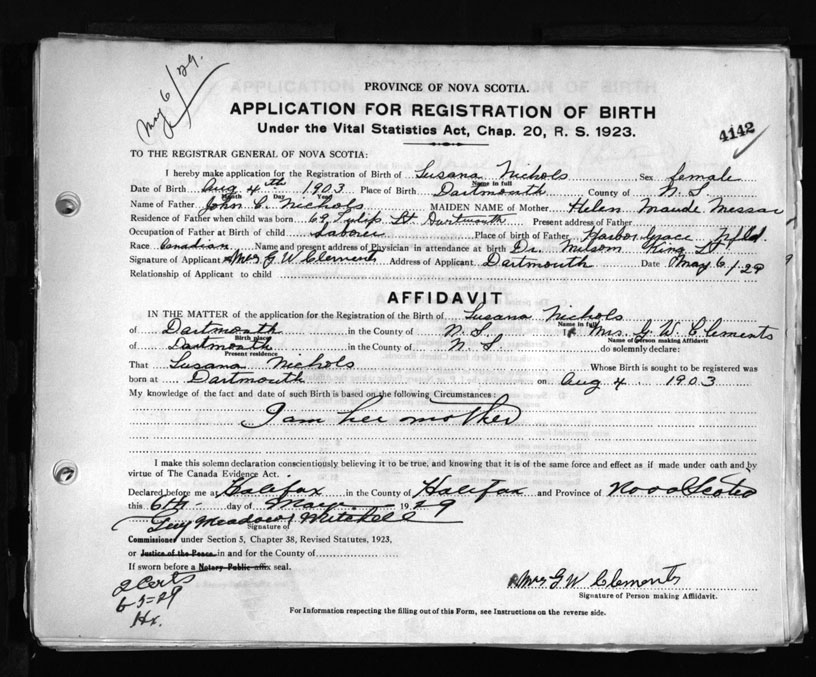 May 6/29.
PROVINCE OF NOVA SCOTIA.
APPLICATION FOR REGISTRATION OF BIRTH
Under the Vital Statistics Act, Chap. 20, R. S. 1923.
4142
TO THE REGISTRAR GENERAL OF NOVA SCOTIA:
I hereby make application for the Registration of Birth of Susana Nichols Sex female
Name in full
Date of Birth Aug 4th 1903 Place of Birth Dartmouth County of N. S
Month Day Year
Name of Father John C. Nichols MAIDEN NAME of Mother Helen Maude Messar
Residence of Father when child was born 69 Tulip St Dartmouth Present address of Father
Occupation of Father at Birth of child Laborer Place of birth of Father Harbor Grace Nfld.
Race Canadian Name and present address of Physician in attendance at birth Dr. Milsom King St
Signature of Applicant Mrs G W Clements Address of Applicant Dartmouth Date May 6/29
Relationship of Applicant to child
AFFIDAVIT
IN THE MATTER of the application for the Registration of the Birth of Susana Nichols
Name in full
of Dartmouth in the County of N. S. I Mrs. G. W. Clements
Birth place Name of person making Affidavit
of Dartmouth in the County of N. S do solemnly declare:
Present residence
That Susana Nichols Whose Birth is sought to be registered was
born at Dartmouth on Aug 4 1903
My knowledge of the fact and date of such Birth is based on the following Circumstances:
I am her mother
I make this solemn declaration conscientiously believing it to be true, and knowing that it is of the same force and effect as if made under oath and by
virtue of The Canada Evidence Act.
Declared before me at Halifax in the County of Halifax and Province of Nova Scotia
this 6th day of May 1929
Guy Meadows Mitchell
Signature of
Commissioner under Section 5, Chapter 38, Revised Statutes, 1923,
or Justice of the Peace in and for the County of
If sworn before a Notary Public affix seal.
2 Certs
6-5-29
Hx.
Mrs G W Clements
Signature of Person making Affidavit.
For Information respecting the filling out of this Form, see Instructions on the reverse side.